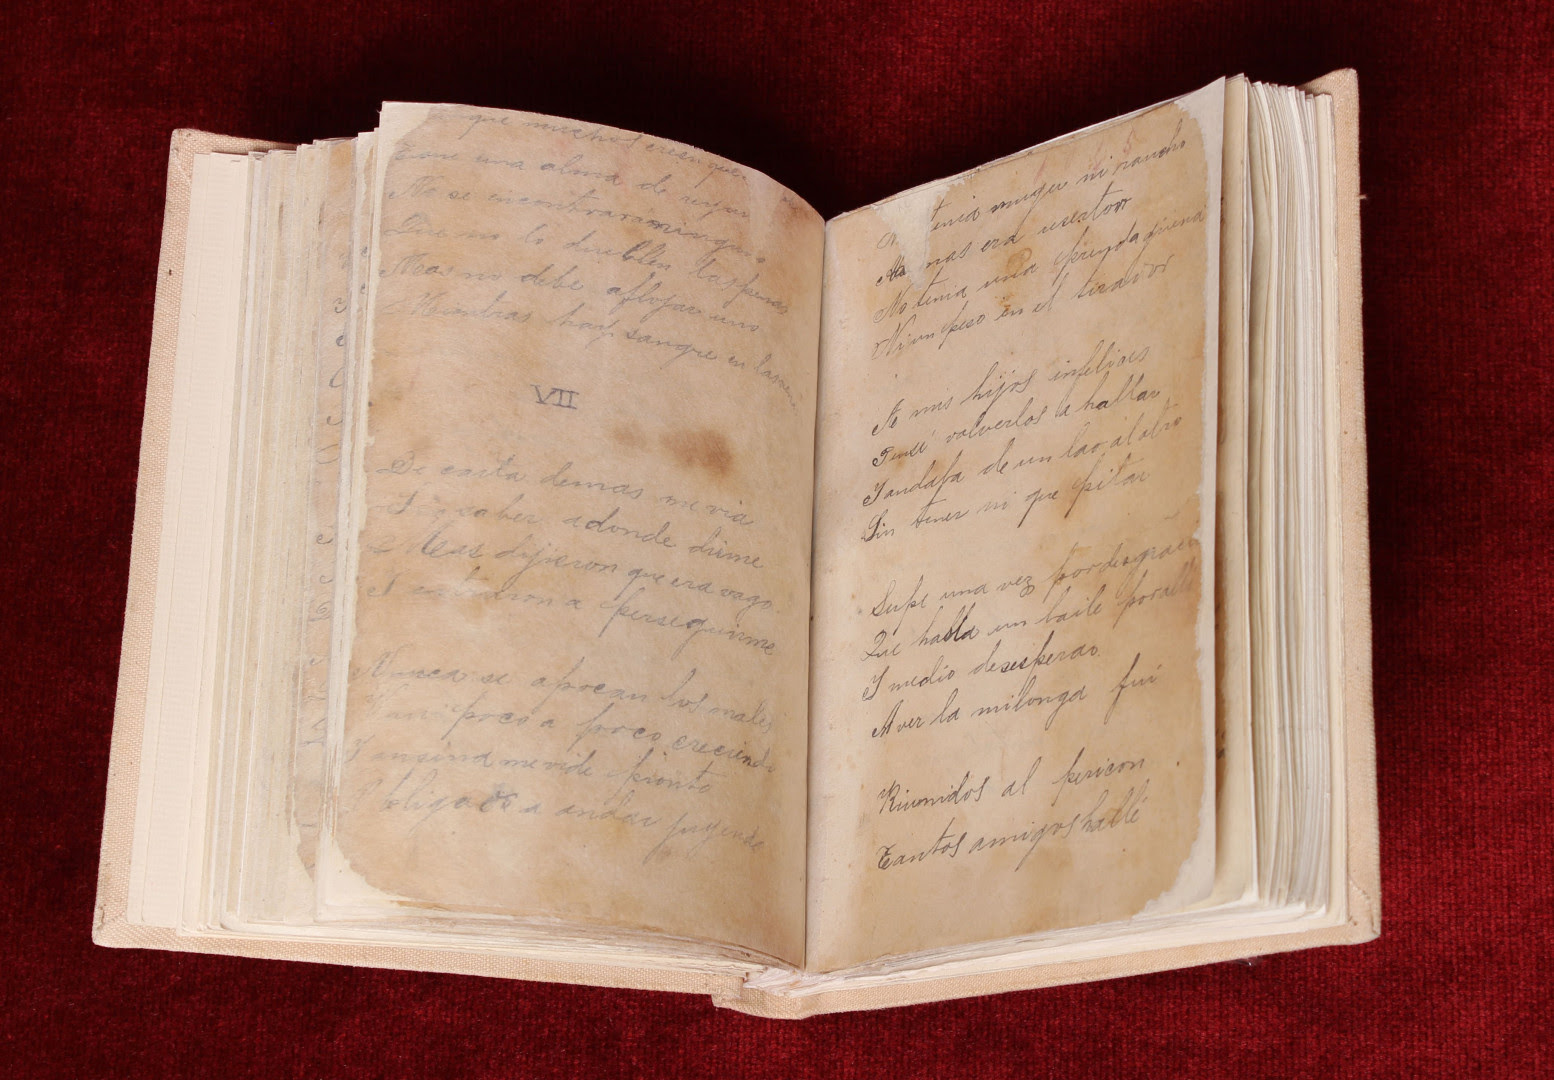 que muchos creen que
Tiene una alma de
No se encontrara ninguno
Que no lo dueblen las penas
Mas no debe aflojar uno
Mientras hay sangre en las vena
VII
De carta demas me via
Sin saber adonde dirme
Mas dijieron que era vago
I entraron a perseguirme
Nunca se apocan los males
Van poco a poco creciendo
Y ansina me vide pronto
Obligado a andar juyendo
tenia muger ni rancho
mas era resertor
No tenia una prenda güena
Ni un peso en el tirador
A mis hijos infelices
Pensé volverlos a hallar
I andaba de un lao al otro
Sin tener ni que pitar
Supe una vez por desgracia
Que habla un baile por alli
I medio desesperao
A ver la milonga fui
Riunidos al pericon
Tantos amigos hallé